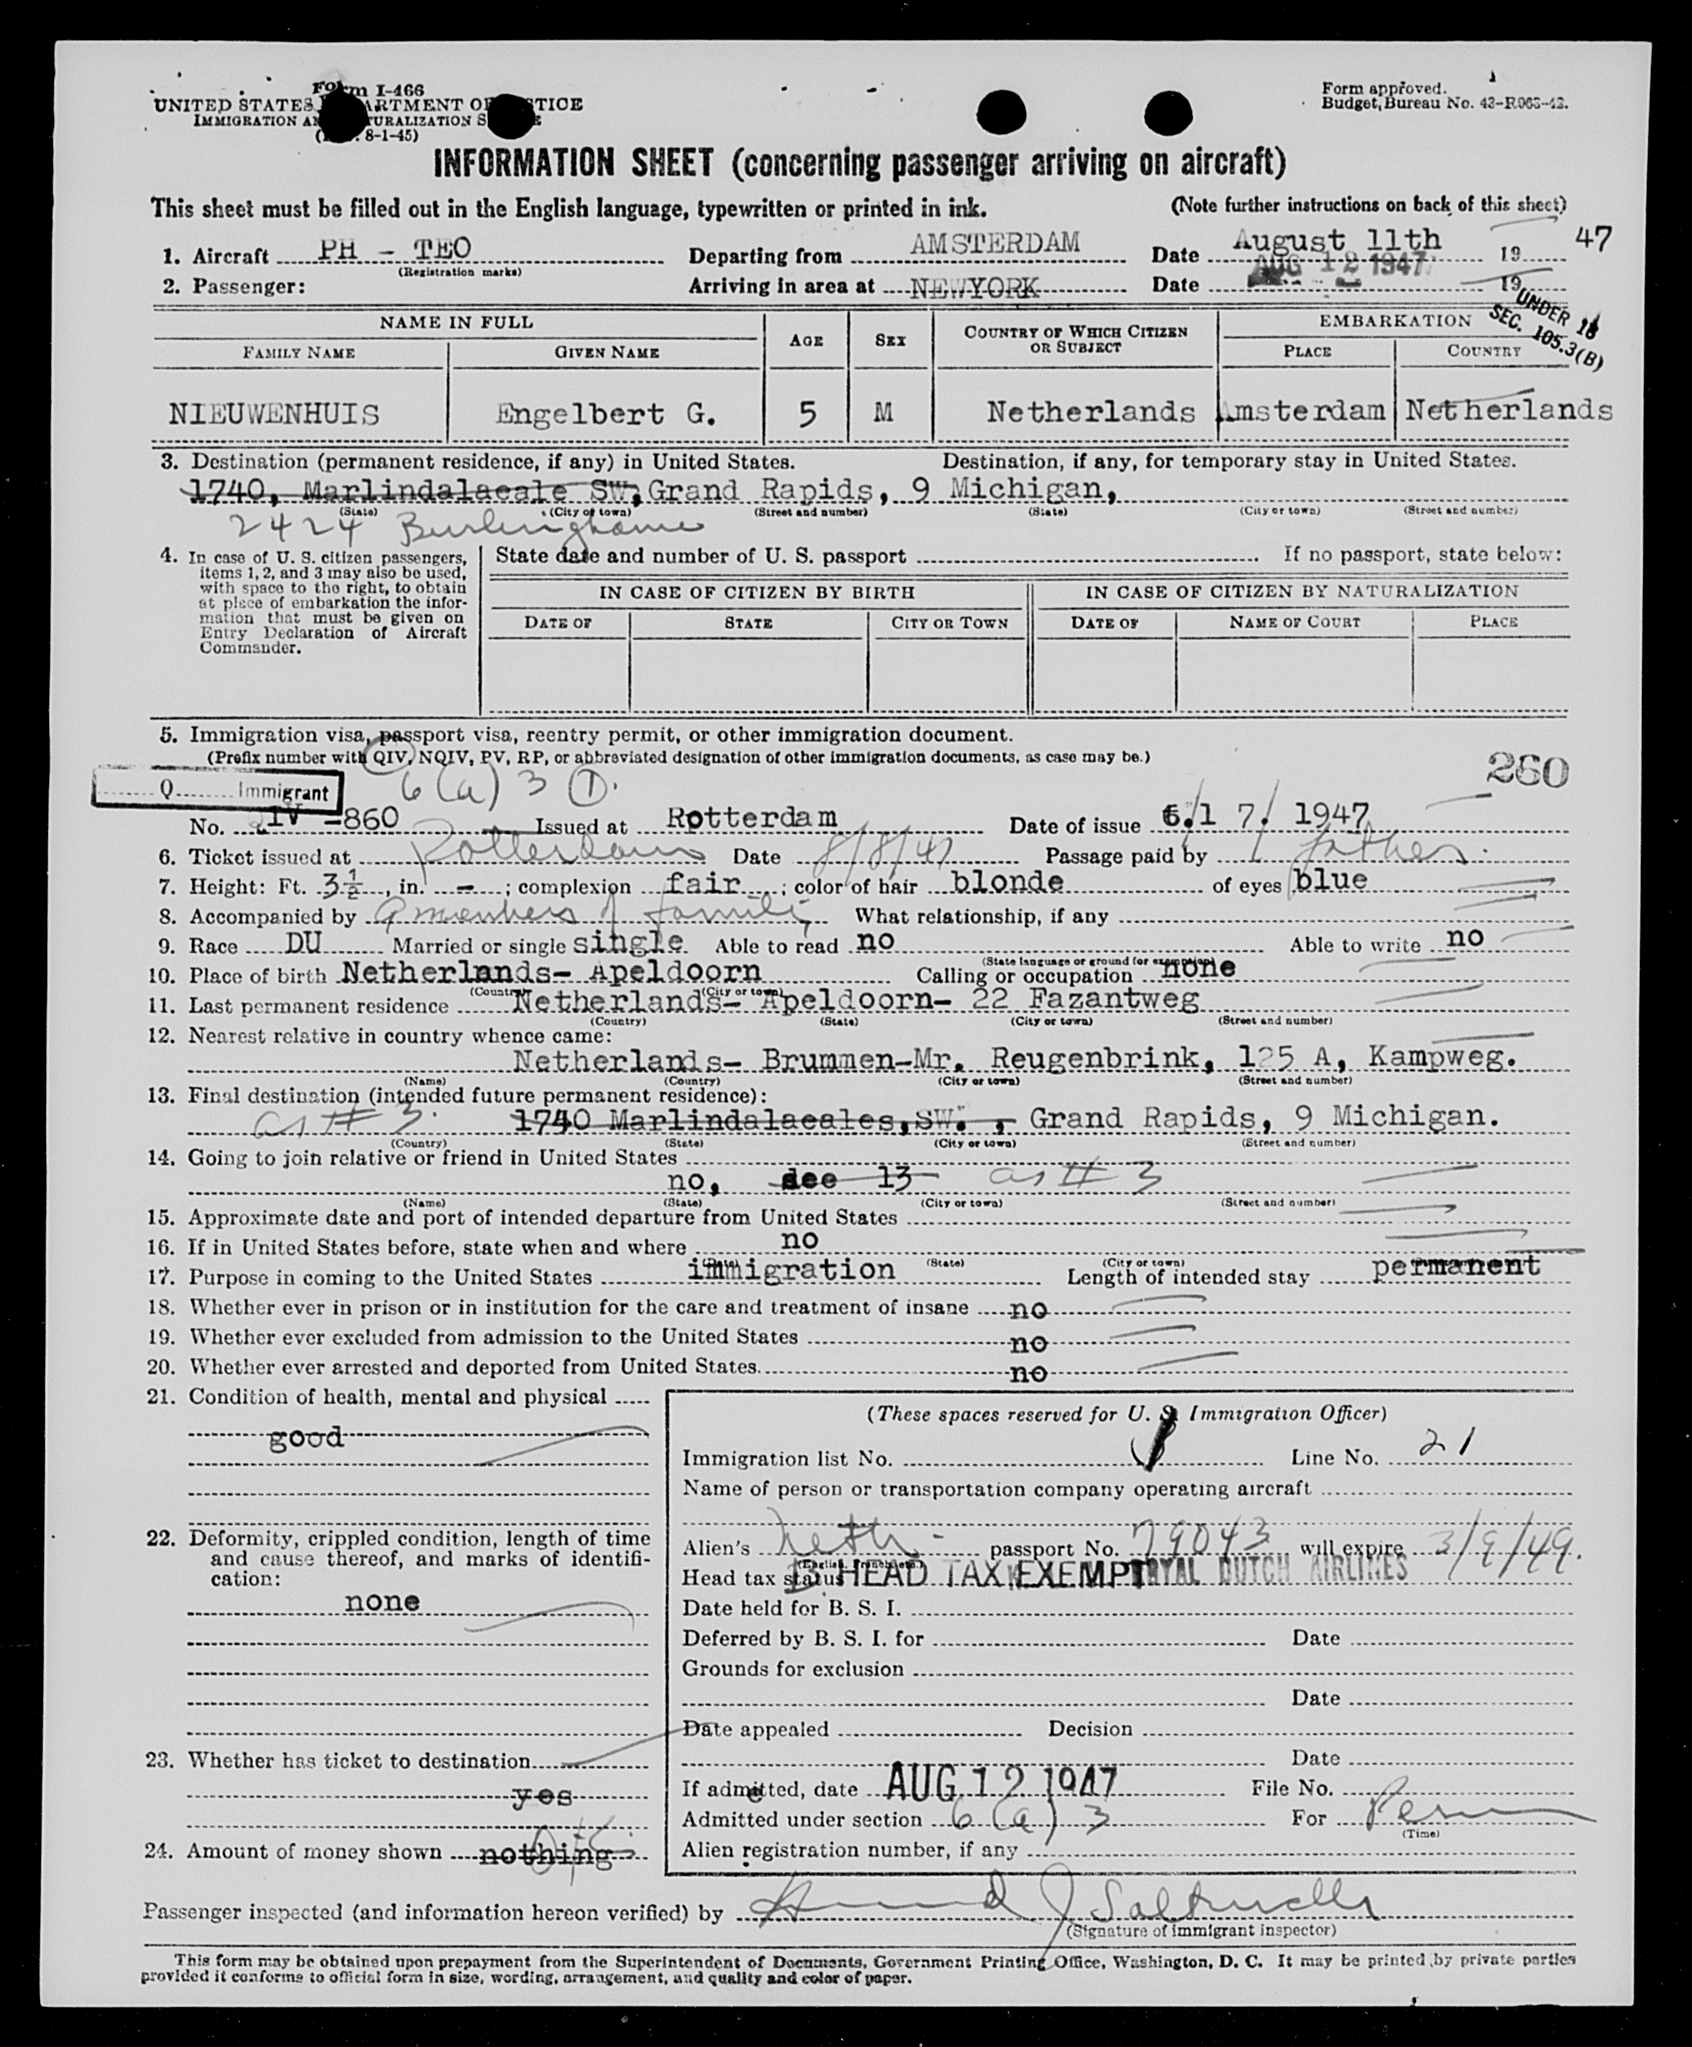 Form I-466
UNITED STATES DEPARTMENT OF JUSTICE
IMMIGRATION AND NATURALIZATION SERVICE
8-1-45)
Form approved.
Budget Bureau No. 43-R063-42.
INFORMATION SHEET (concerning passenger arriving on aircraft)
This sheet must be filled out in the English language, typewritten or printed in ink. (Note further instructions on back of this sheet)
1. Aircraft PH - TEO Departing from AMSTERDAM Date August 11th 19 47
(Registration marks)
2. Passenger: Arriving in area at NEWYORK Date AUG 12 1947 19
UNDER 16
SEC. 105.3(B)
NAME IN FULL AGE SEX COUNTRY OF WHICH CITIZEN OR SUBJECT EMBARKATION
FAMILY NAME GIVEN NAME PLACE COUNTRY
NIEUWENHUIS Engelbert G. 5 M Netherlands Amsterdam Netherlands
3. Destination (permanent residence, if any) in United States. Destination, if any, for temporary stay in United States.
1740, Marlindalaeale SW, Grand Rapids, 9 Michigan,
(State) (City or town) (Street and number) (State) (City or town) (Street and number)
2424 Burlinghame
4. In case of U. S. citizen passengers, items 1, 2, and 3 may also be used, with space to the right, to obtain at place of embarkation the information that must be given on Entry Declaration of Aircraft Commander.
State date and number of U. S. passport If no passport, state below:
IN CASE OF CITIZEN BY BIRTH IN CASE OF CITIZEN BY NATURALIZATION
DATE OF STATE CITY OR TOWN DATE OF NAME OF COURT PLACE
5. Immigration visa, passport visa, reentry permit, or other immigration document.
(Prefix number with QIV, NQIV, PV, RP, or abbreviated designation of other immigration documents, as case may be.)
260
Q Immigrant 6(a) 3 1.
No. IV -860 Issued at Rotterdam Date of issue 6. 1 7. 1947
6. Ticket issued at Rotterdam Date 8/8/47 Passage paid by father.
7. Height: Ft. 3½, in. - ; complexion fair ; color of hair blonde of eyes blue
8. Accompanied by 9 members of family What relationship, if any
9. Race DU Married or single single Able to read no Able to write no
(State language or ground for exemption)
10. Place of birth Netherlands- Apeldoorn Calling or occupation none
(Country) (City or town)
11. Last permanent residence Netherlands- Apeldoorn- 22 Fazantweg
(Country) (State) (City or town) (Street and number)
12. Nearest relative in country whence came:
Netherlands- Brummen-Mr. Reugenbrink, 125 A, Kampweg.
(Name) (Country) (City or town) (Street and number)
13. Final destination (intended future permanent residence):
as # 3. 1740 Marlindalaeales, SW. , Grand Rapids, 9 Michigan.
(Country) (State) (City or town) (Street and number)
14. Going to join relative or friend in United States
no, see 13 as # 3
(Name) (State) (City or town) (Street and number)
15. Approximate date and port of intended departure from United States
16. If in United States before, state when and where no
(Date) (State) (City or town)
17. Purpose in coming to the United States immigration Length of intended stay permanent
18. Whether ever in prison or in institution for the care and treatment of insane no
19. Whether ever excluded from admission to the United States no
20. Whether ever arrested and deported from United States. no
21. Condition of health, mental and physical
good
22. Deformity, crippled condition, length of time and cause thereof, and marks of identification:
none
23. Whether has ticket to destination
yes
24. Amount of money shown nothing
(These spaces reserved for U. S. Immigration Officer)
Immigration list No. Line No. 21
Name of person or transportation company operating aircraft
Alien's Neth - passport No. 79043 will expire 3/9/49.
(English, French, etc.)
Head tax status HEAD TAX EXEMPT ROYAL DUTCH AIRLINES
Date held for B. S. I.
Deferred by B. S. I. for Date
Grounds for exclusion
Date
Date appealed Decision
Date
If admitted, date AUG 12 1947 File No.
Admitted under section 6(a) 3 For Perm
(Time)
Alien registration number, if any
Passenger inspected (and information hereon verified) by
(Signature of immigrant inspector)
This form may be obtained upon prepayment from the Superintendent of Documents, Government Printing Office, Washington, D. C. It may be printed by private parties
provided it conforms to official form in size, wording, arrangement, and quality and color of paper.